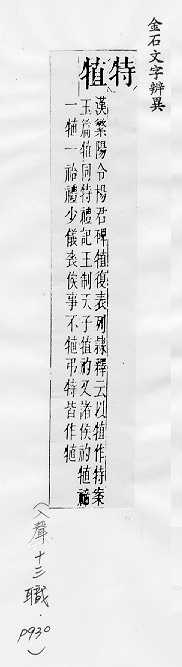 金石文字辨異
特
犆
漢繁陽令楊君碑犆復表列隸釋云以犆作特案
玉篇犆同特禮記王制天子犆礿又諸侯礿犆禘
一犆一祫禮少儀喪俟事不犆弔特皆作犆
(入聲十三職.
P930)